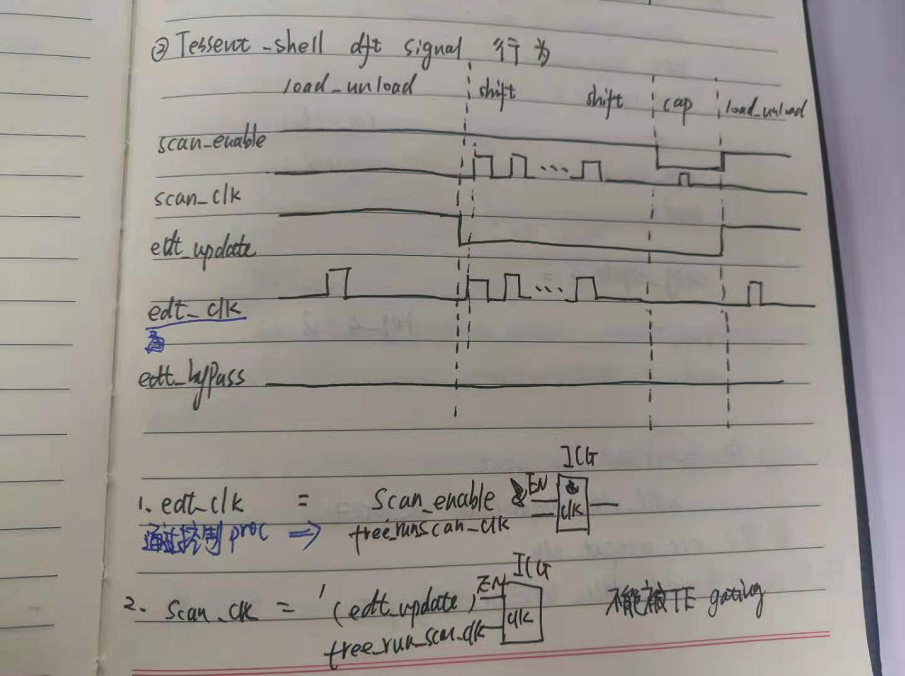 ② Tessent-shell dft signal 行为
load_unload shift shift cap load_unload
scan_enable
scan_clk
edt_update
edt_clk
edt_bypass
ICG
1. edt_clk = scan_enable & EN
通过控制 proc ⇒ free_runscan_clk clk
ICG
2. scan_clk = '(edt_update) EN 不能被TE gating
free_run_scan_clk clk